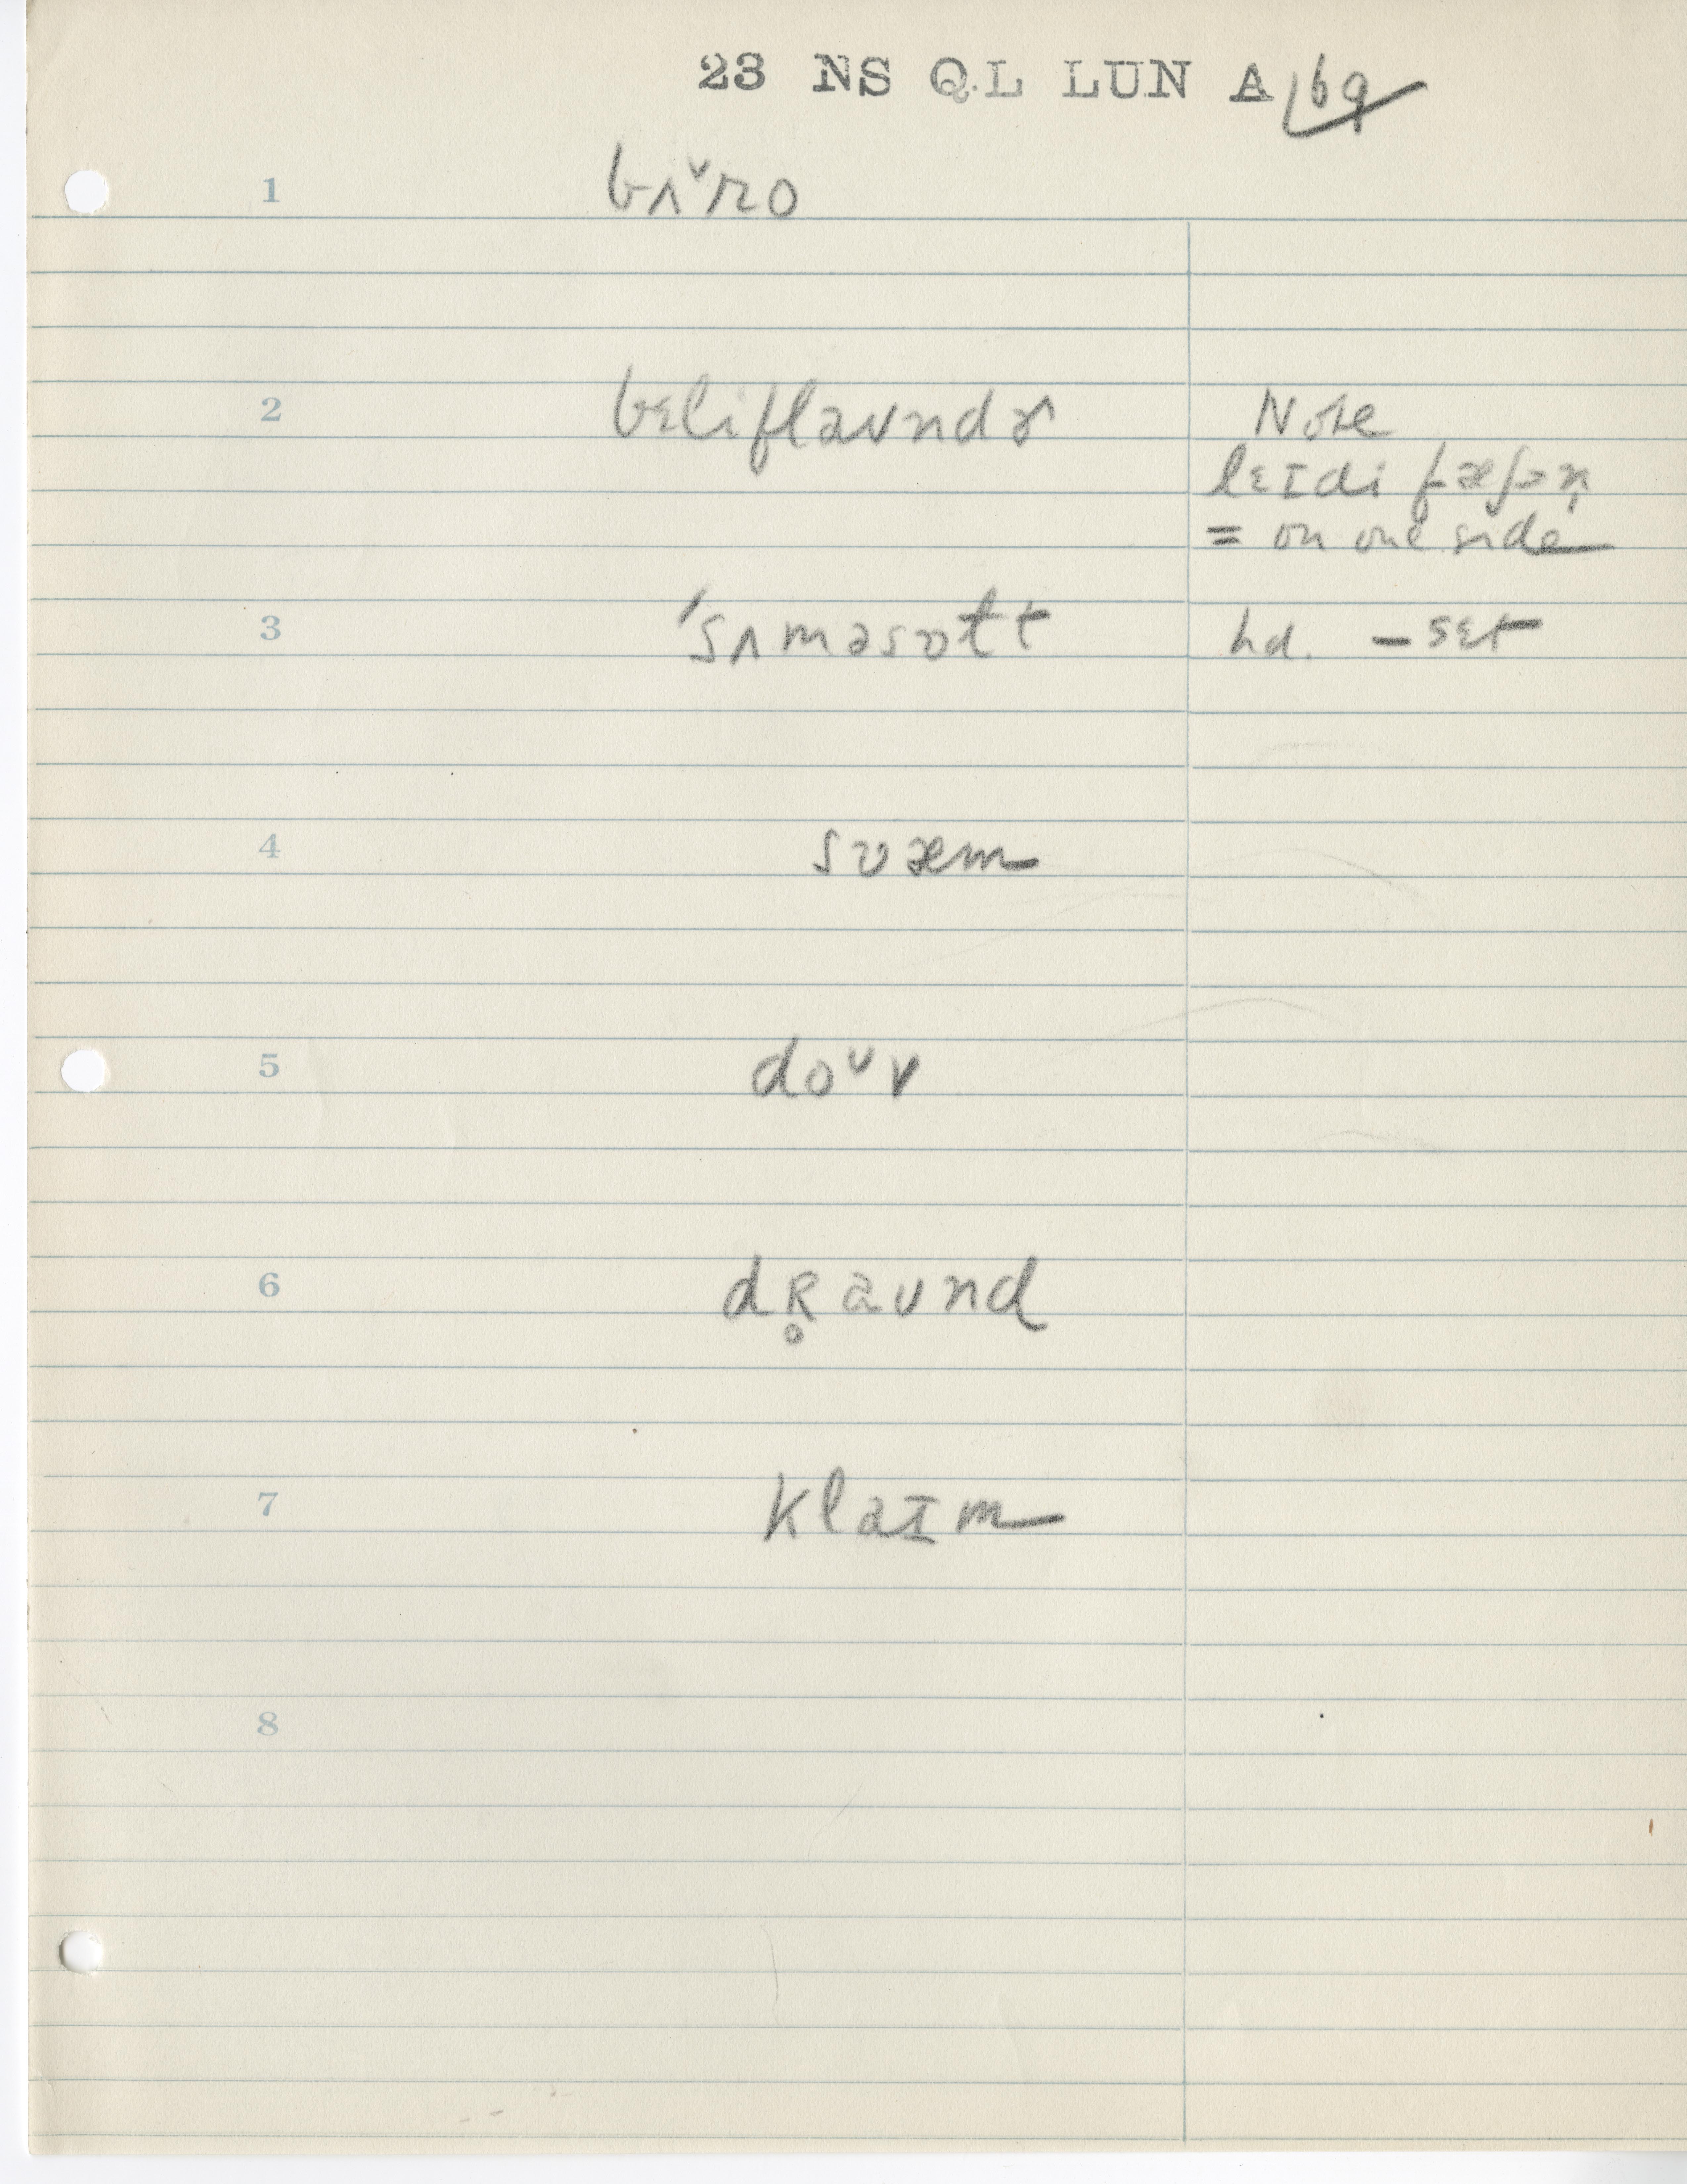 23 NS Q.L LUN A 69
1 bʌˇro
2 bɛliflaʊndɚ Note
lɛɪdi fæʃən̩
= on one side
3 ˈsʌməsɒtt hd. – sɛt
4 swæm
5 doᵘv
6 dʀ̥aʊnd
7 klaɪm
8